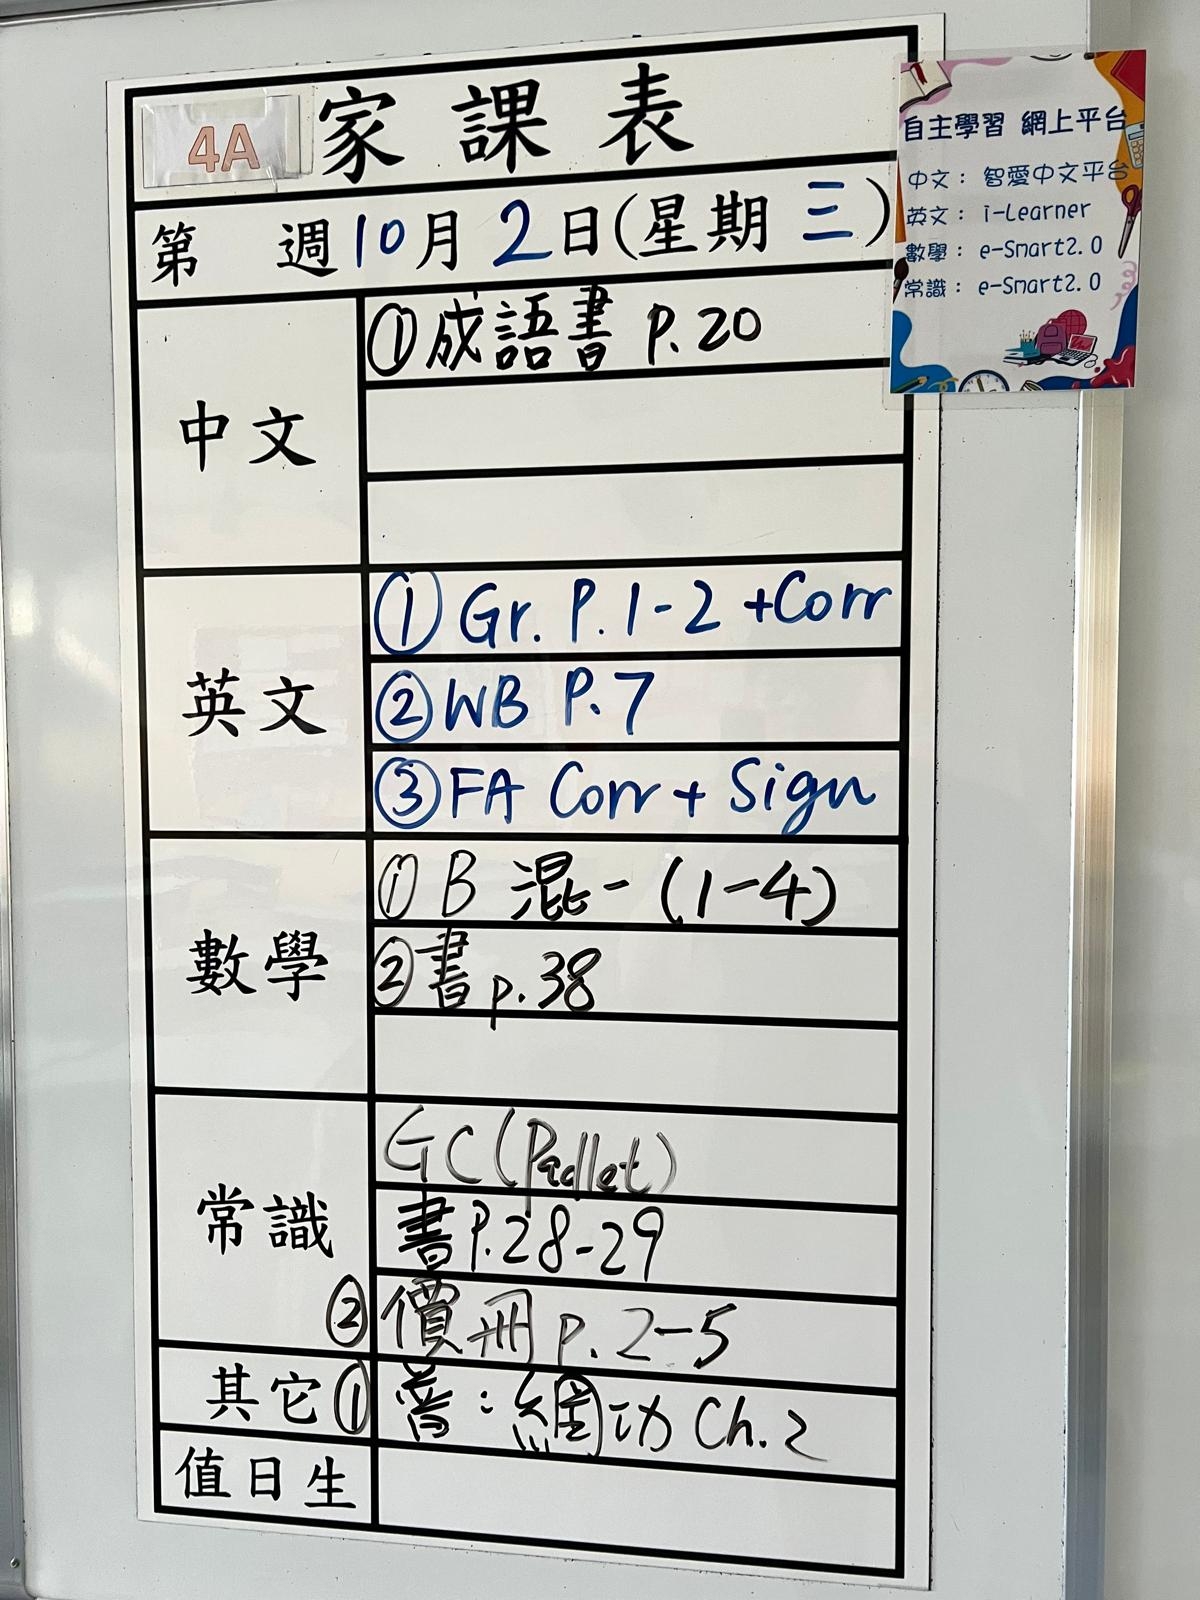 4A 家課表
第 週10月2日(星期三)
中文
①成語書 P.20
英文
① Gr. P.1-2 +Corr
②WB P.7
③FA Corr + Sign
數學
① B 混一 (1-4)
②書 p.38
常識
GC (Padlet)
書P.28-29
② 價冊 p.2-5
其它 ① 普:網功 Ch.2
值日生
自主學習 網上平台
中文: 智愛中文平台
英文: i-Learner
數學: e-Smart2.0
常識: e-Smart2.0